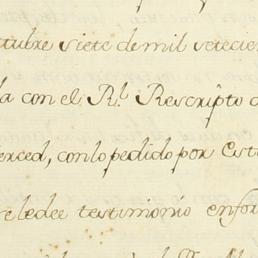 ctubre siete de mil setecien
la con el Rl. Rescripto d
erced, con lo pedido por esta
se le dee testimonio en for